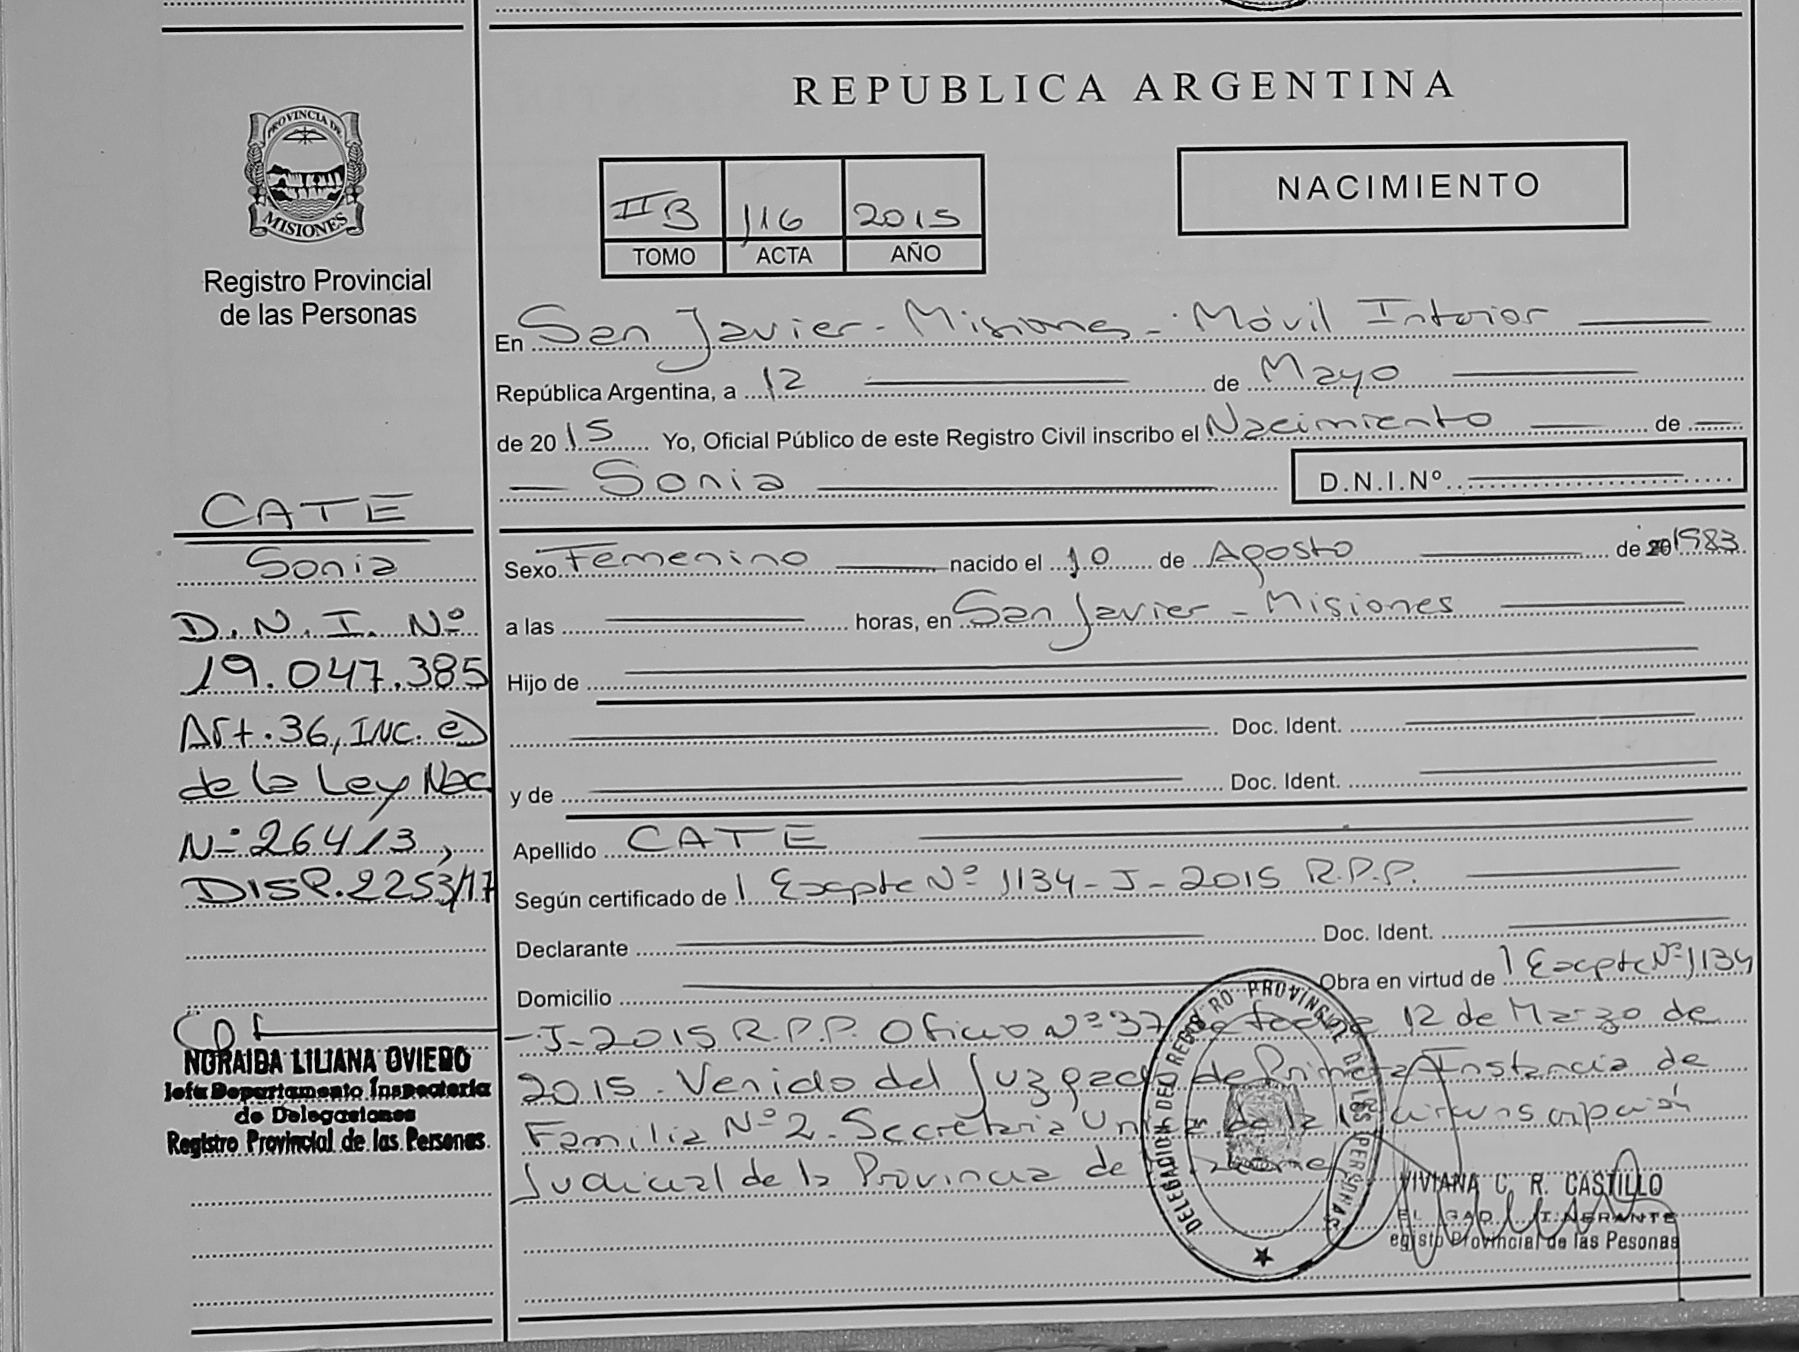 REPUBLICA ARGENTINA
PROVINCIA DE
MISIONES
Registro Provincial
de las Personas
NACIMIENTO
IIB 116 2015
TOMO ACTA AÑO
En San Javier - Misiones - Móvil Interior
República Argentina, a 12 de Mayo
de 2015 Yo, Oficial Público de este Registro Civil inscribo el Nacimiento de
Sonia D.N.I.Nº
Sexo Femenino nacido el 10 de Agosto de 1983
a las horas, en San Javier - Misiones
Hijo de
Doc. Ident.
y de Doc. Ident.
Apellido CATE
Según certificado de Expte Nº 1134-J-2015 R.P.P.
Declarante Doc. Ident.
Domicilio Obra en virtud de Expte Nº 1134
-J-2015 R.P.P. Oficio Nº 37 de fecha 12 de Marzo de
2015. Venido del Juzgado de Primera Instancia de
Familia Nº 2. Secretaria Unica de la circunscripción
Judicial de la Provincia de Misiones
DELEGACION DEL REGISTRO PROVINCIAL DE LAS PERSONAS
VIVIANA C. R. CASTILLO
ITINERANTE
egistro Provincial de las Pesonas
CATE
Sonia
D.N.I. Nº
19.047.385
Art. 36, INC. e)
de la Ley Nac
Nº 26413,
DISP. 2253/17
NORAIBA LILIANA OVIEDO
Jefa Departamento Inspectoria
de Delegaciones
Registro Provincial de las Personas